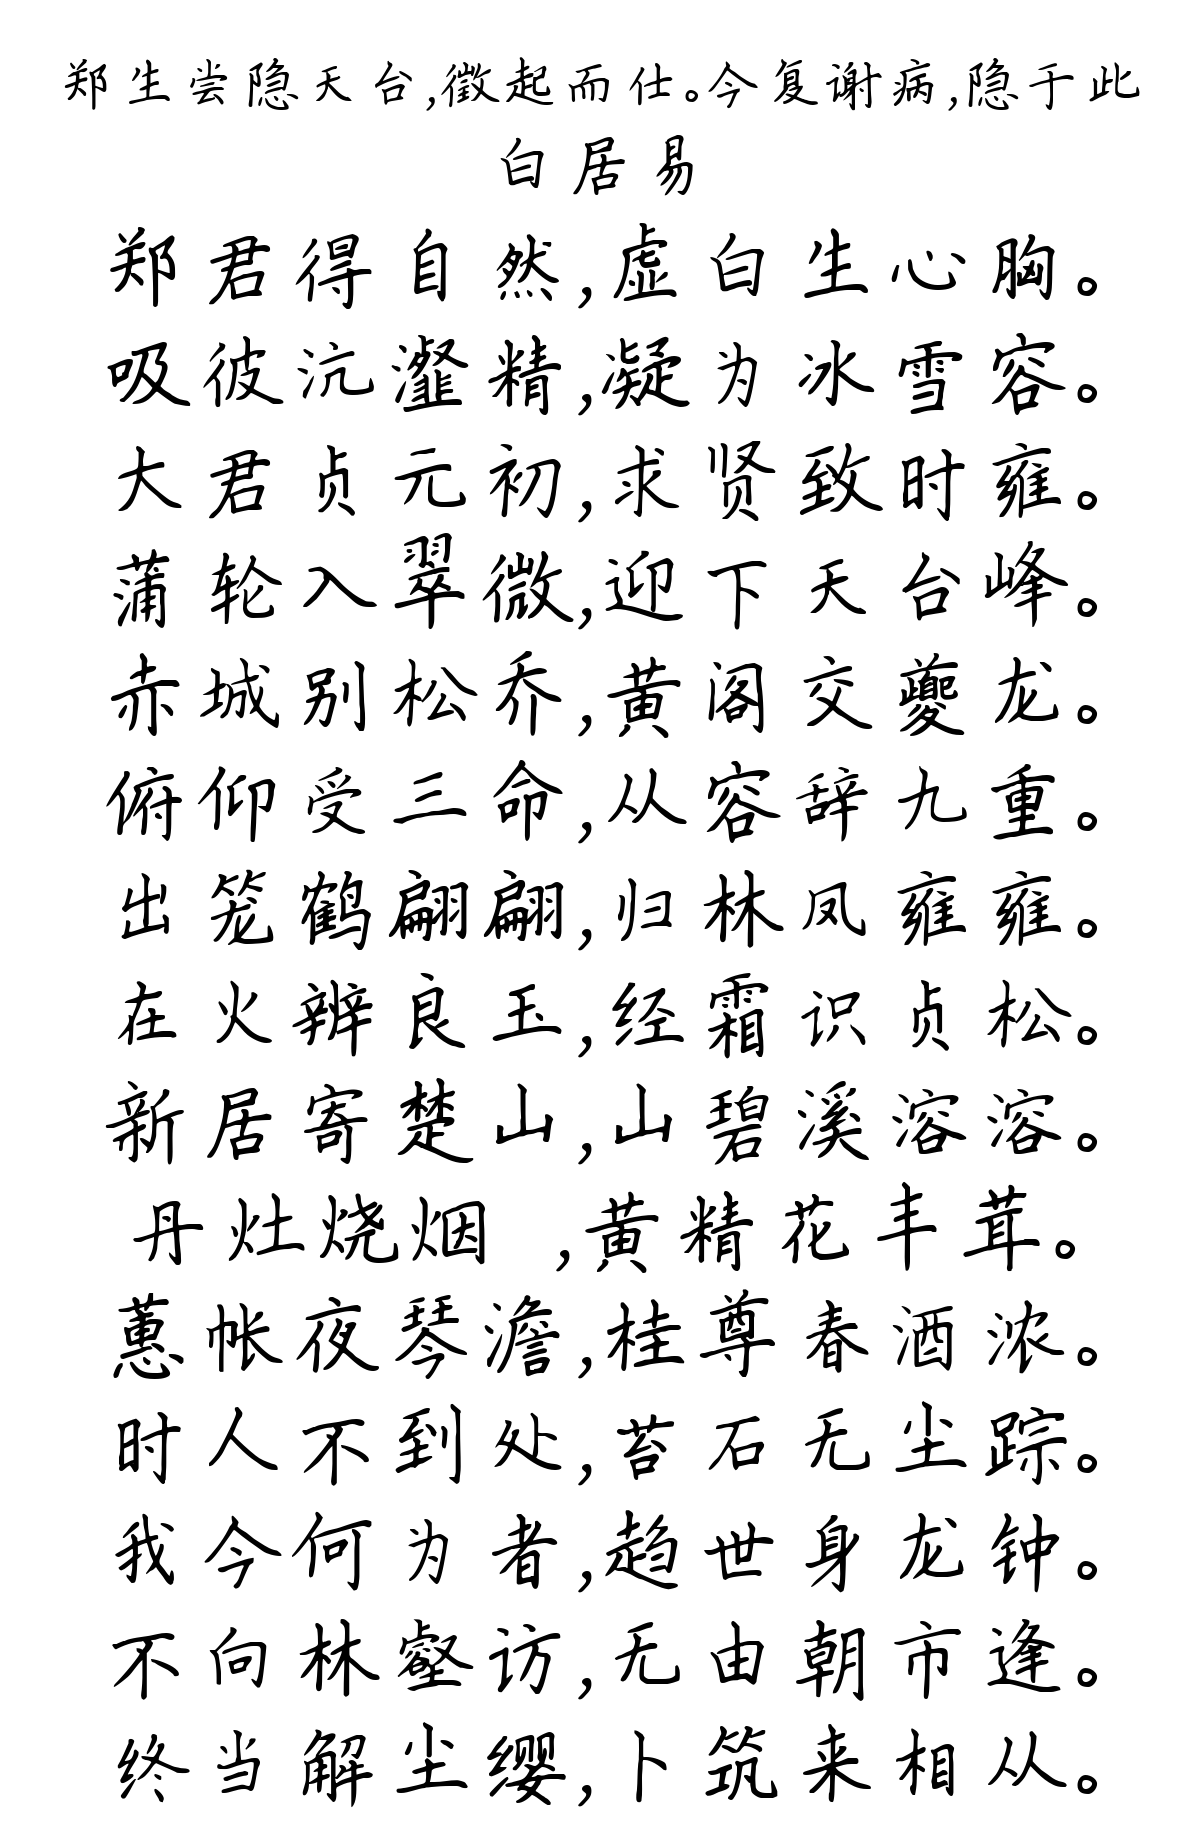 郑生尝隐天台,徵起而仕。今复谢病,隐于此
白居易
郑君得自然,虚白生心胸。
吸彼沆瀣精,凝为冰雪容。
大君贞元初,求贤致时雍。
蒲轮入翠微,迎下天台峰。
赤城别松乔,黄阁交夔龙。
俯仰受三命,从容辞九重。
出笼鹤翩翩,归林凤雍雍。
在火辨良玉,经霜识贞松。
新居寄楚山,山碧溪溶溶。
丹灶烧烟 ,黄精花丰茸。
蕙帐夜琴澹,桂尊春酒浓。
时人不到处,苔石无尘踪。
我今何为者,趋世身龙钟。
不向林壑访,无由朝市逢。
终当解尘缨,卜筑来相从。